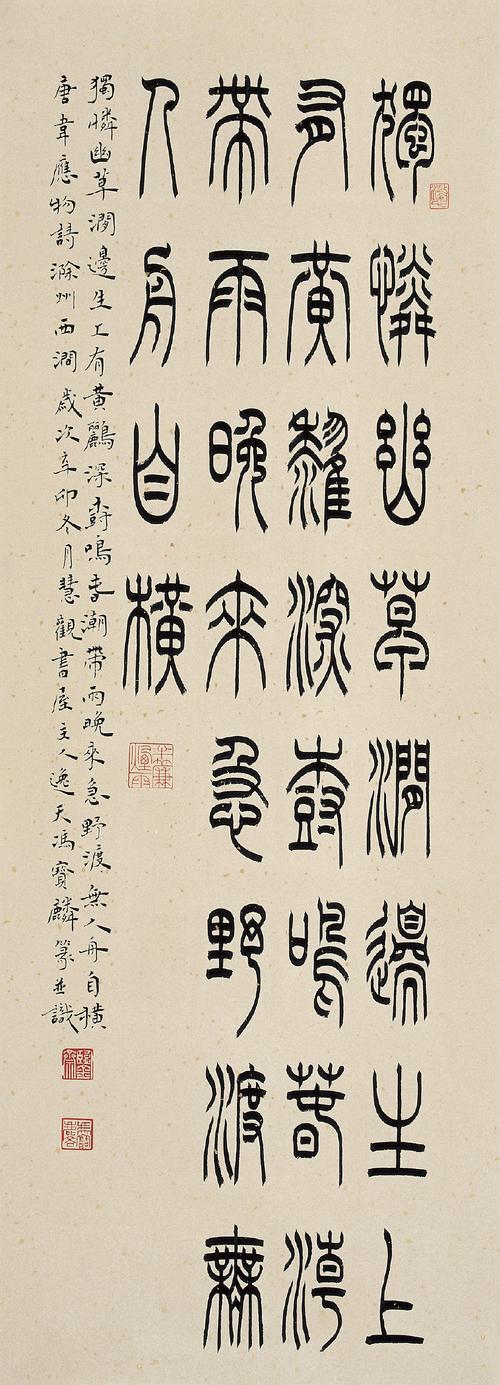 獨憐幽草澗邊生上
有黃鸝深樹鳴春潮
帶雨晚來急野渡無
人舟自橫
獨憐幽草澗邊生上有黃鸝深樹鳴春潮帶雨晚來急野渡無人舟自橫
唐韋應物詩滁州西澗歲次辛卯冬月慧觀書屋主人逸天馮寶麟篆並識